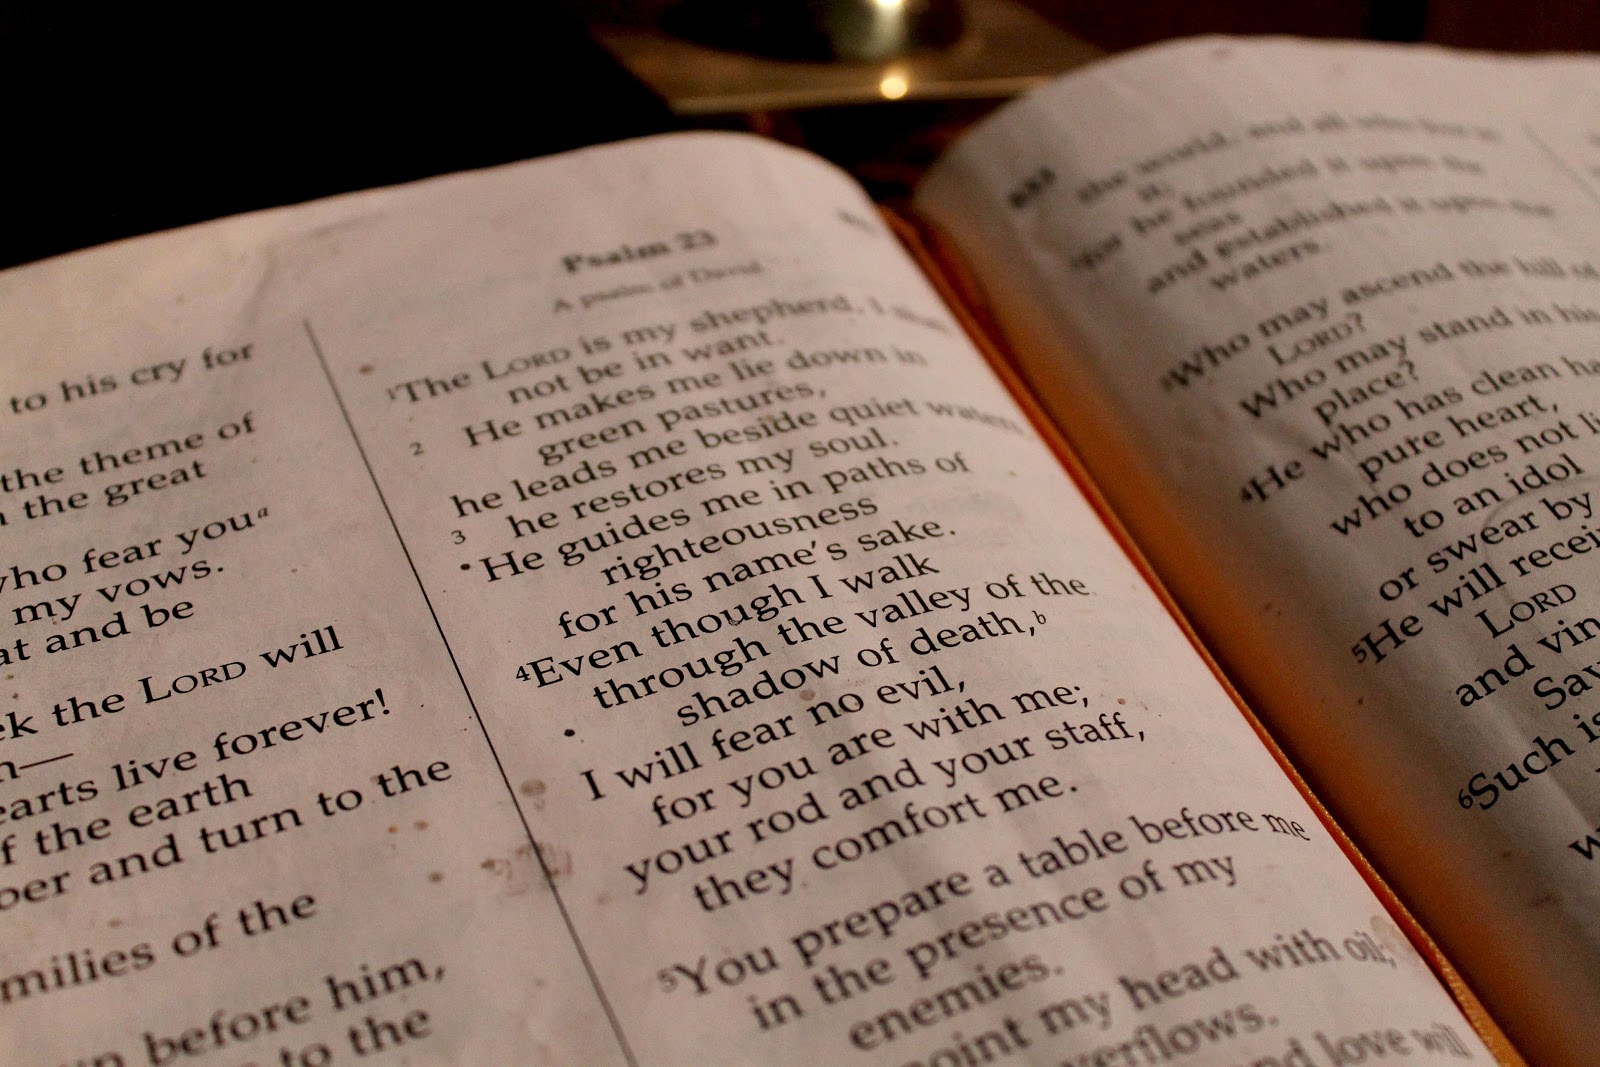 to his cry for
the theme of
the great
who fear youᵃ
my vows.
and be
the LORD will
hearts live forever!
the earth
and turn to the
of the
before him,
to the
Psalm 23
A psalm of David.
¹The LORD is my shepherd, I shall
not be in want.
2 He makes me lie down in
green pastures,
he leads me beside quiet waters,
3 he restores my soul.
•He guides me in paths of
righteousness
for his name's sake.
⁴Even though I walk
through the valley of the
shadow of death,ᵇ
• I will fear no evil,
for you are with me;
your rod and your staff,
they comfort me.
⁵You prepare a table before me
in the presence of my
enemies.
my head with oil;
overflows.
and love will
the world, and all who live in
it;
for he founded it upon the
seas
and established it upon the
waters.
³Who may ascend the hill of
LORD?
Who may stand in his
place?
⁴He who has clean
pure heart,
who does not
to an idol
or swear by
⁵He will
LORD
and
⁶Such is